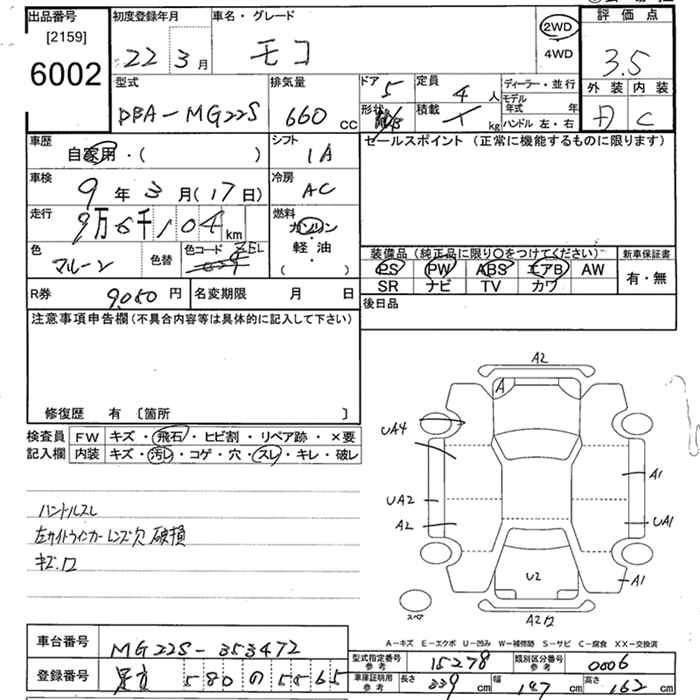 出品番号 初度登録年月 車名・グレード 評価点
[2159]
6002
22 3月 モコ 2WD 4WD 3.5
型式 排気量 ドア 定員 ディーラー・並行 外装 内装
DBA-MG22S 660cc 5 4人 モデル年式 年
形状 積載 kg ハンドル 左・右 C
車歴 シフト セールスポイント (正常に機能するものに限ります)
自家用・( ) IA
車検 冷房
9年3月(17日) AC
走行 燃料
9万6千104km ガソリン
軽・油
( )
色 色替 色コード
マルーン
装備品(純正品に限り〇をつけてください) 新車保証書
PS PW ABS エアB AW 有・無
SR ナビ TV カワ
R券 9,050円 名変期限 月 日 後日品
注意事項申告欄(不具合内容等は具体的に記入して下さい)
修復歴 有 [箇所 ]
検査員 FW キズ・飛石・ヒビ割・リペア跡・×要
記入欄 内装 キズ・汚レ・コゲ・穴・スレ・キレ・破レ
ハンドルスレ
左サイドウインカーレンズ欠 破損
A2
A
UA4
A1
UA2
A2
UA1
U2
A1
スペア
A-キズ E-エクボ U-凹み W-補修跡 S-サビ C-腐食 XX-交換済
車台番号 MG22S-353472
型式指定番号 参考 15278 類別区分番号 参考 0006
登録番号 580の5565
車庫証明用 参考 長さ 339cm 幅 147cm 高さ 162cm